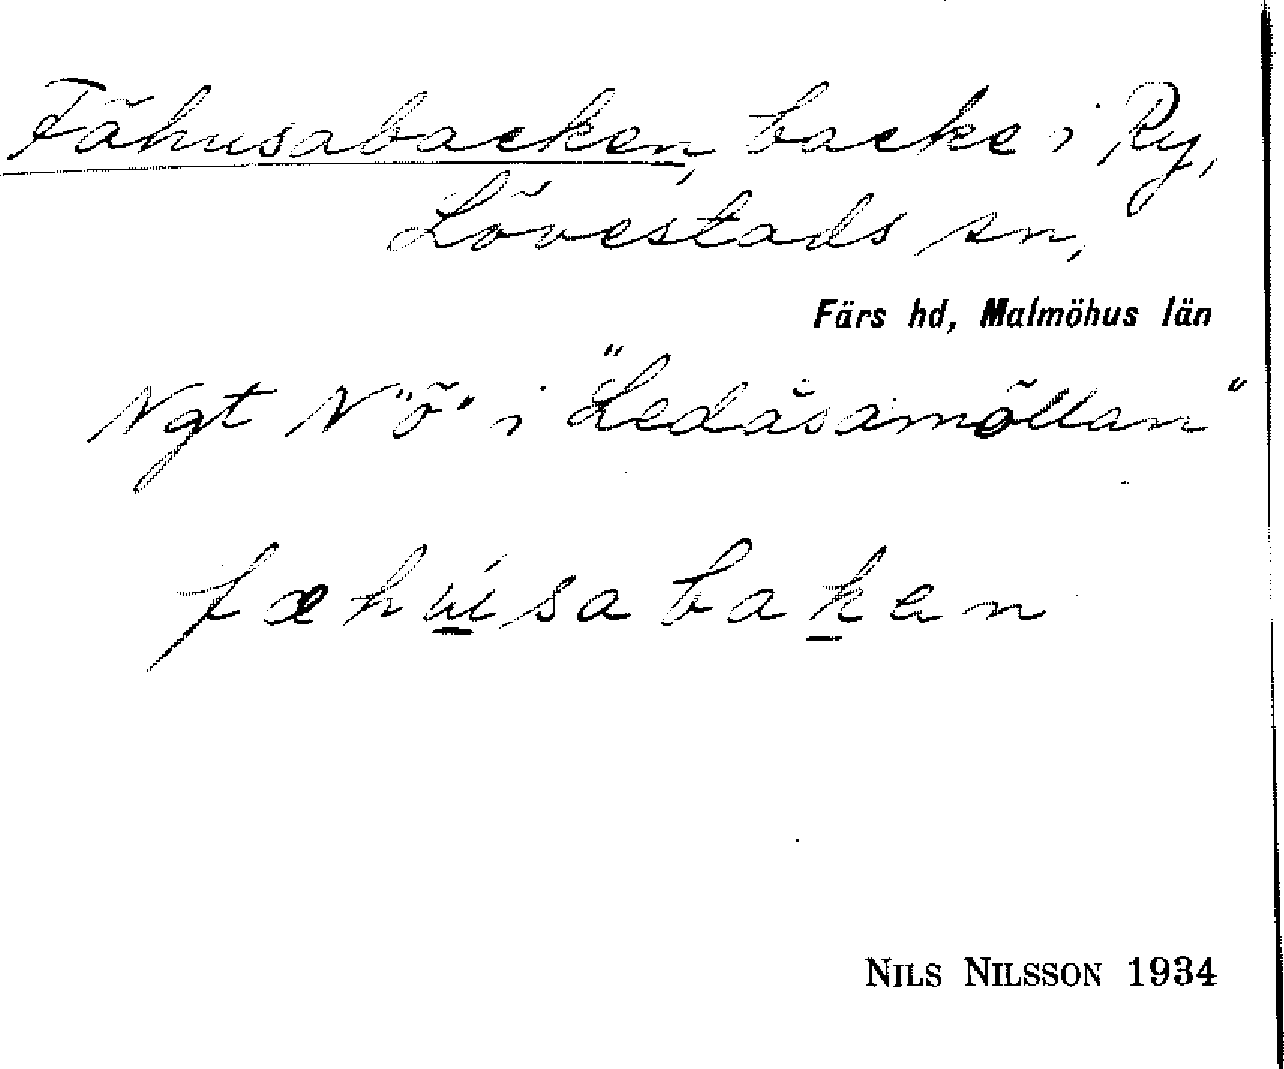 Fähusabacken, backe i Ry,
Lövestads sn,
Färs hd, Malmöhus län
Ngt N "ö" i "Ledåsamöllan"
fæhu̲sabak̲an
NILS NILSSON 1934